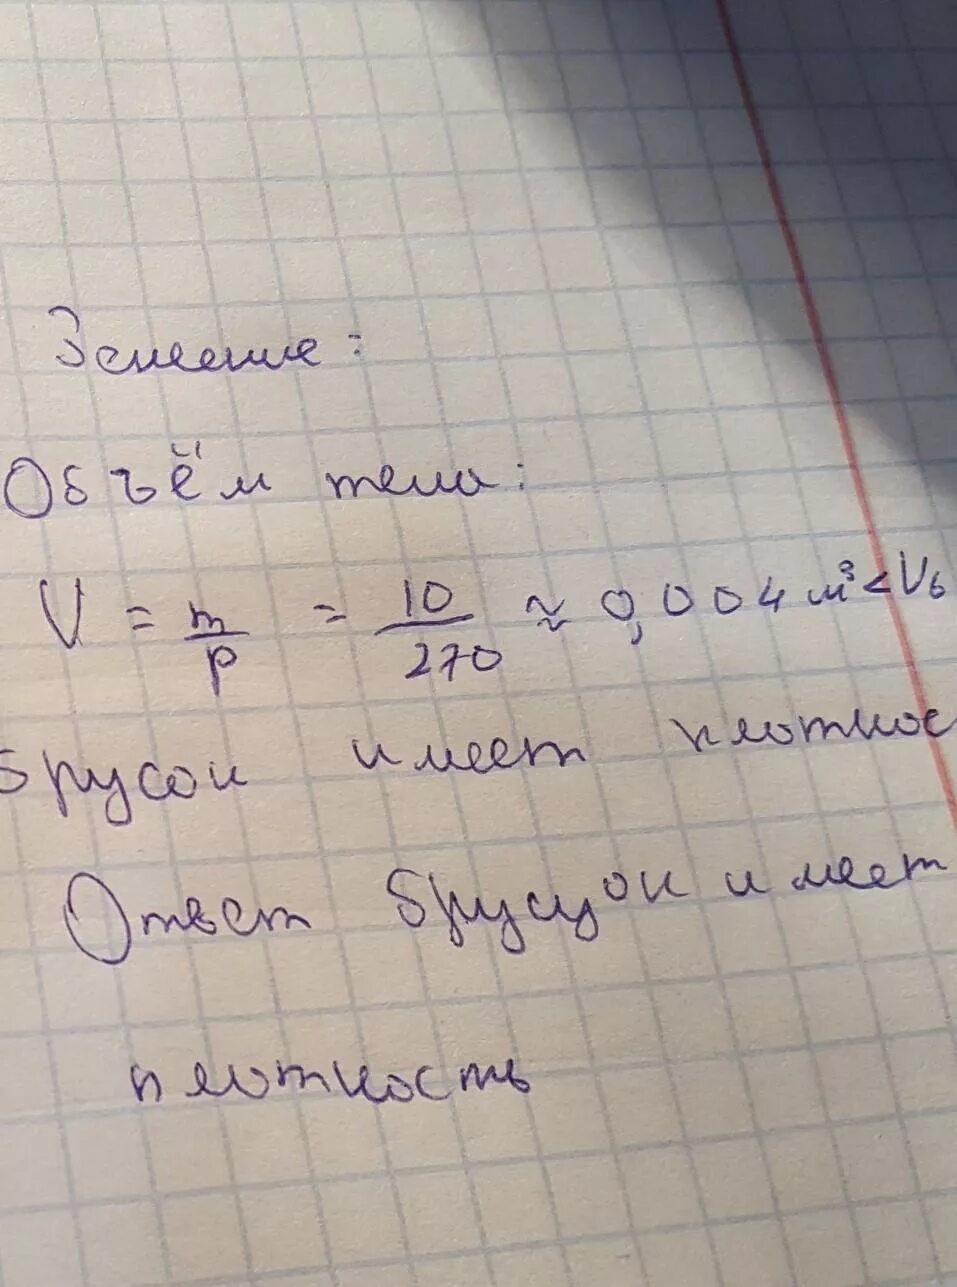 Объём тела:
V = m/p = 10/270 ≈ 0,004 м³ < Vб
брусок имеет плотнос
Ответ брусцок имеет
плотность